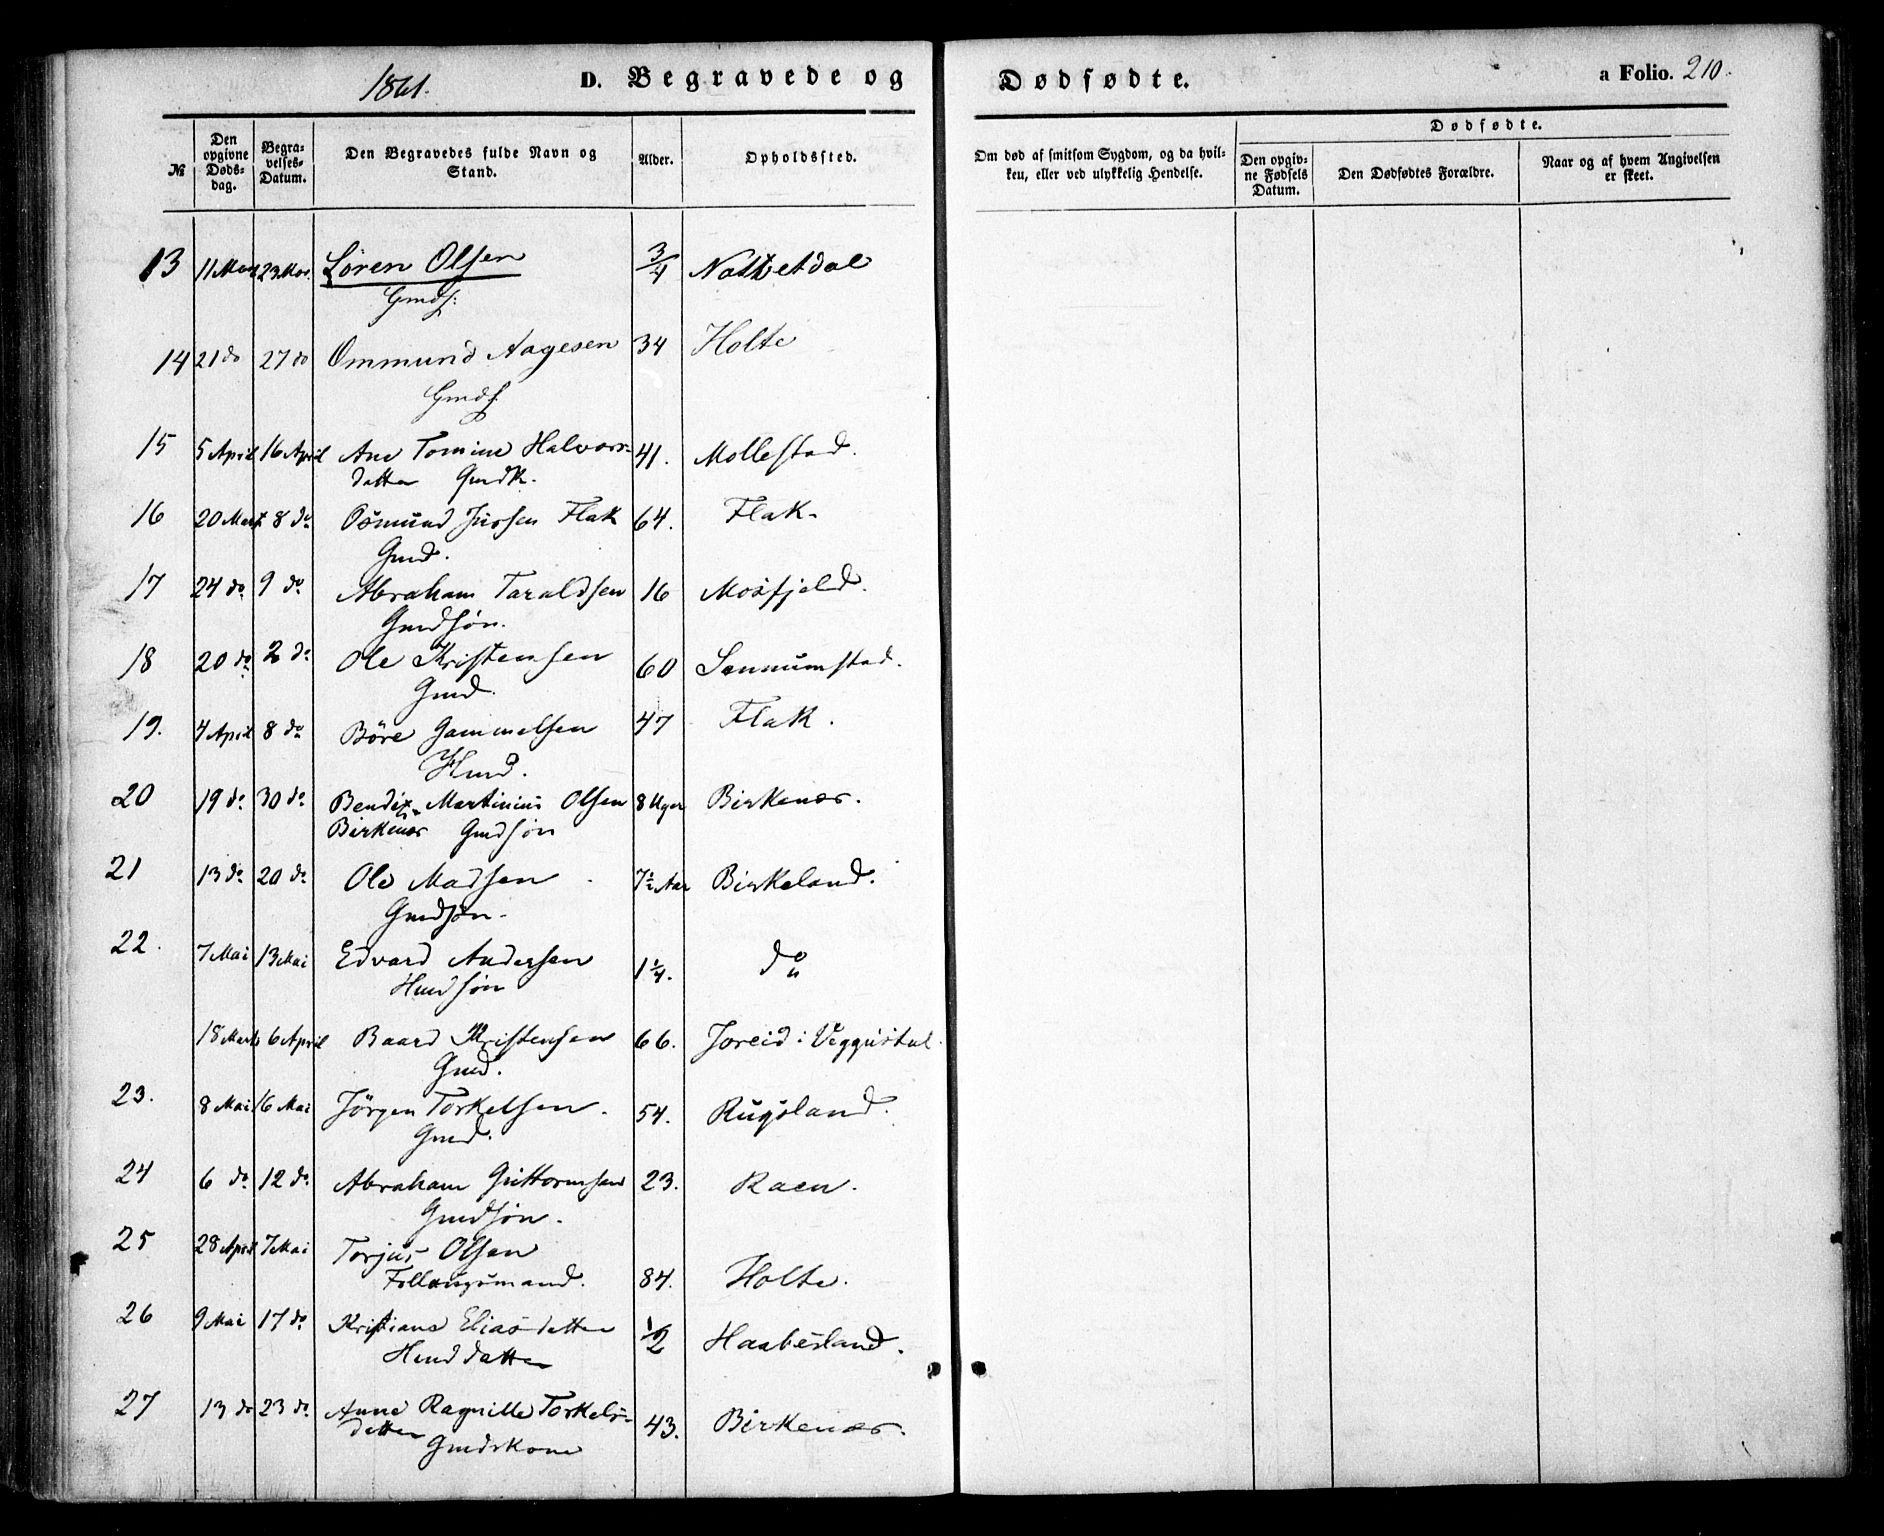 1861.
D. Begravede og
Dødfødte.
a Folio. 210.
№
Den opgivne Døds-dag.
Begra-velses-Datum.
Den Begravedes fulde Navn og Stand.
Alder.
Opholdssted.
Om død af smitsom Sygdom, og da hvil-ken, eller ved ulykkelig Hendelse.
Dødfødte.
Den opgiv-ne Fødsels Datum.
Den Dødfødtes Forældre.
Naar og af hvem Angivelsen er skeet.
13 11 Mar 23 Mar. Søren Olsen 3/4 Nattvetdal
Gmds:
14 21 do 27 do Ommund Aagesen 34 Holte
Gmds
15 5 April 16 April Ane Tomine Halvors- 41. Mollestad.
datter Gmdk.
16 20 Marts 8 do Osmund Jursen Flak 64. Flak.
Gmd.
17 24 do 9 do Abraham Taraldsen 16 Mosfjeld.
Gmdsøn.
18 20 do 2 do Ole Kristensen 60 Sennumstad.
Gmd.
19. 4 April 8 do Böre Gammelsen 47 Flak.
Hmd.
20 19 do 30 do Bendix Martinius Olsen 8 Uger Birkenær.
Birkenær Gmdsøn
21 13 do 20 do Ole Madsen 7½ Aar Birkeland.
Gmdsøn.
22. 7 Mai 13 Mai Edvard Andersen 1¼. do
Hmdsøn
18 Marts 6 April Baard Kristensen 66. Joreid i Veggusdal.
Gmd.
23. 8 Mai 16 Mai Jörgen Torkelsen. 54. Rugsland.
Gmd.
24 6 do 12 do Abraham Guttormsen 23. Raen.
Gmdsøn.
25 28 April 7 Mai Torjus Olsen
Follaugsmand. 84. Holte.
26 9 Mai 17 do Kristiane Eliasdatter ½ Haabesland.
Hmddatter
27 13 do 23 do Anne Ragnille Torkels- 43. Birkenær.
datter Gmdskone